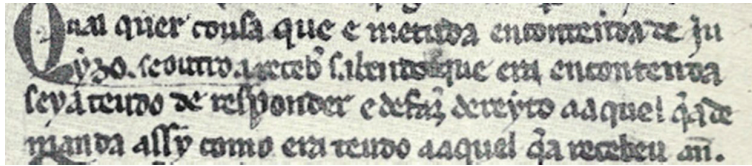 Qual quer cousa que e metuda encontenda de Ju
yzo. seoutro areceb̃ sabendo que era encontenda
seyateudo de responder e defaz̃ dereyto aaquel q̃a de
manda assy como era teudo aaquel q̃a recebeu añ.